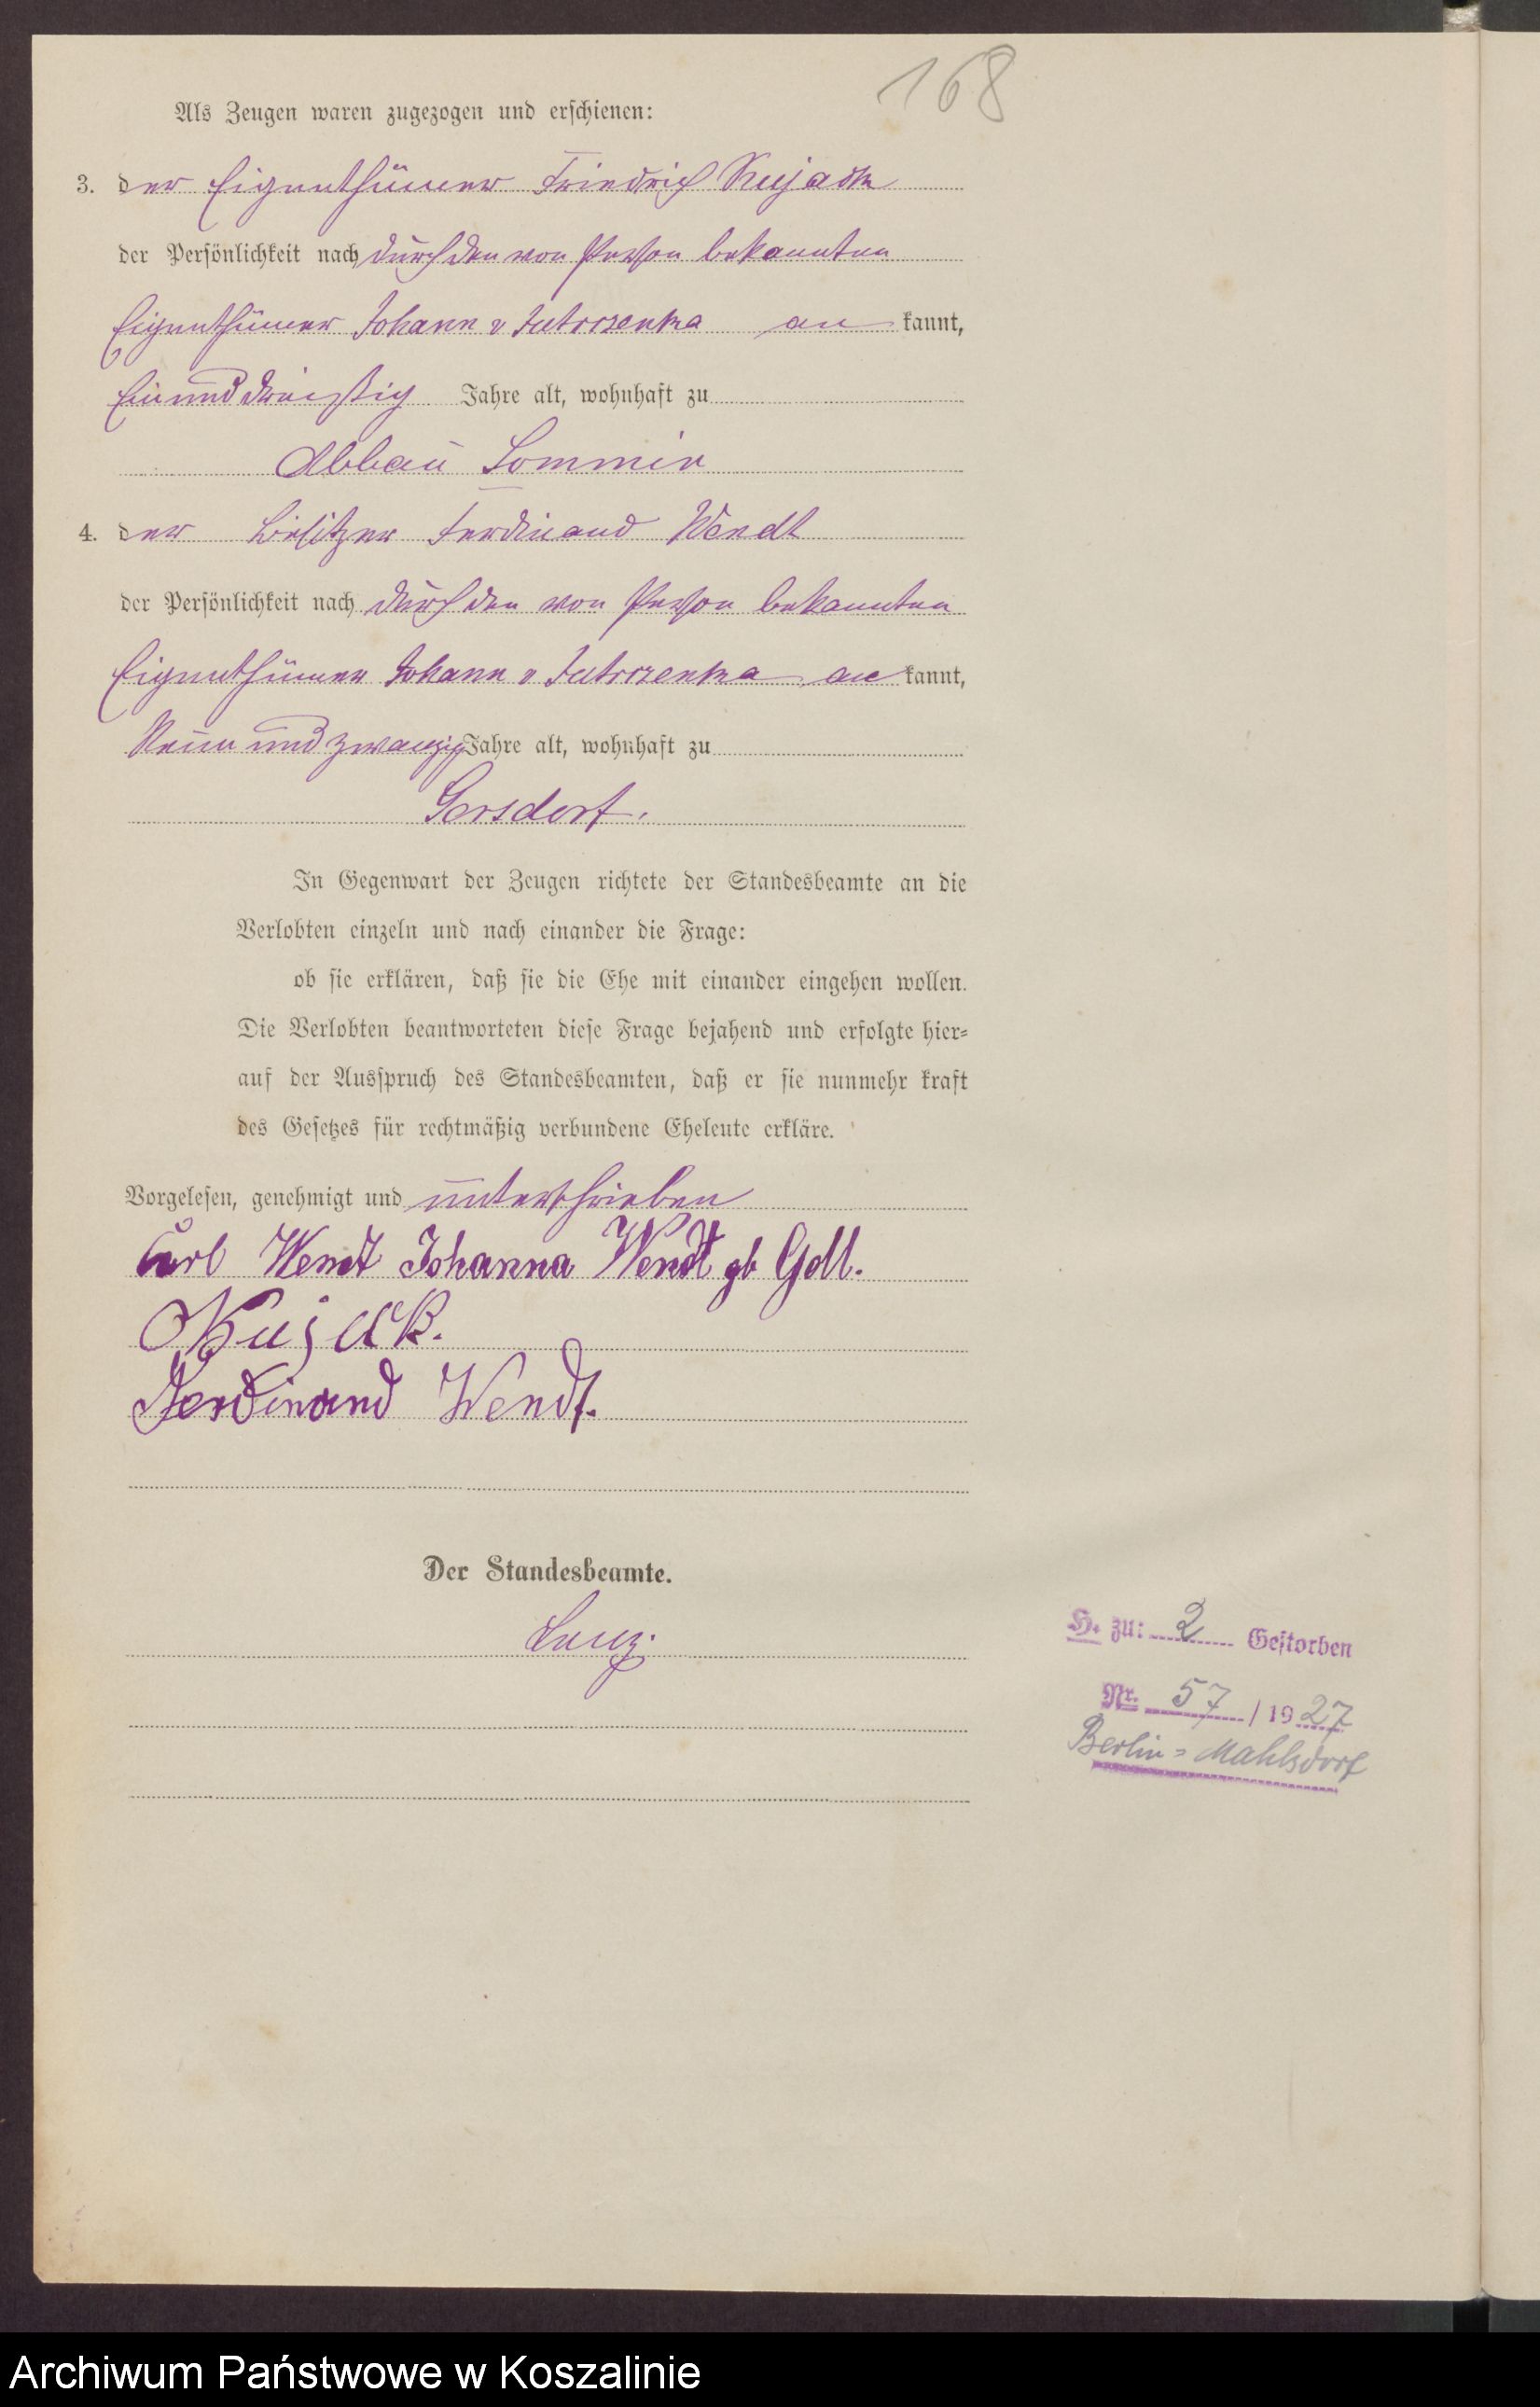 168
Als Zeugen waren zugezogen und erschienen:
3. der Eigenthümer Friedrich Kujack
der Persönlichkeit nach durch den von Person bekannten
Eigenthümer Johann v Jutrzenka an kannt,
Ein und dreißig Jahre alt, wohnhaft zu
Abbau Sommin
4. der Besitzer Ferdinand Wendt
der Persönlichkeit nach durch den von Person bekannten
Eigenthümer Johann v Jutrzenka an kannt,
Neun und zwanzig Jahre alt, wohnhaft zu
Gersdorf.
In Gegenwart der Zeugen richtete der Standesbeamte an die
Verlobten einzeln und nach einander die Frage:
ob sie erklären, daß sie die Ehe mit einander eingehen wollen.
Die Verlobten beantworteten diese Frage bejahend und erfolgte hier=
auf der Ausspruch des Standesbeamten, daß er sie nunmehr kraft
des Gesetzes für rechtmäßig verbundene Eheleute erkläre.
Vorgelesen, genehmigt und unterschrieben
Carl Wendt Johanna Wendt gb
Kujack.
Ferdinand Wendt.
Der Standesbeamte.
H. zu: 2 Gestorben
Nr. 57 / 1927
Berlin=Mahlsdorf
Archiwum Państwowe w Koszalinie